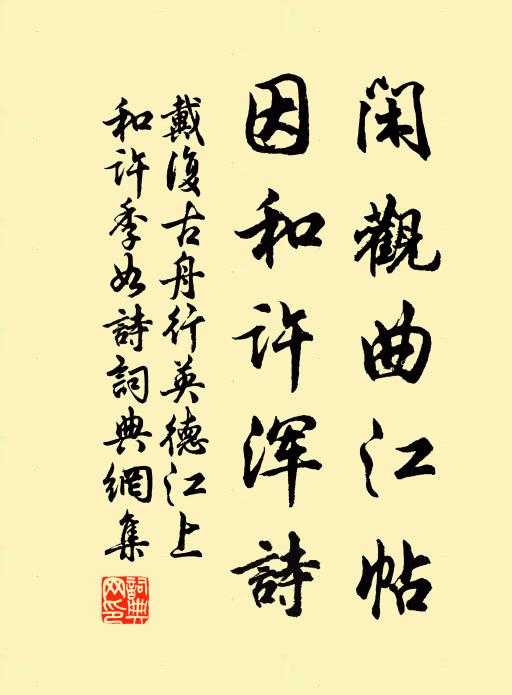 闲觀曲江帖
因和许浑詩
戴復古舟行英德江上
和许季如詩詞典網集
詞典
网印